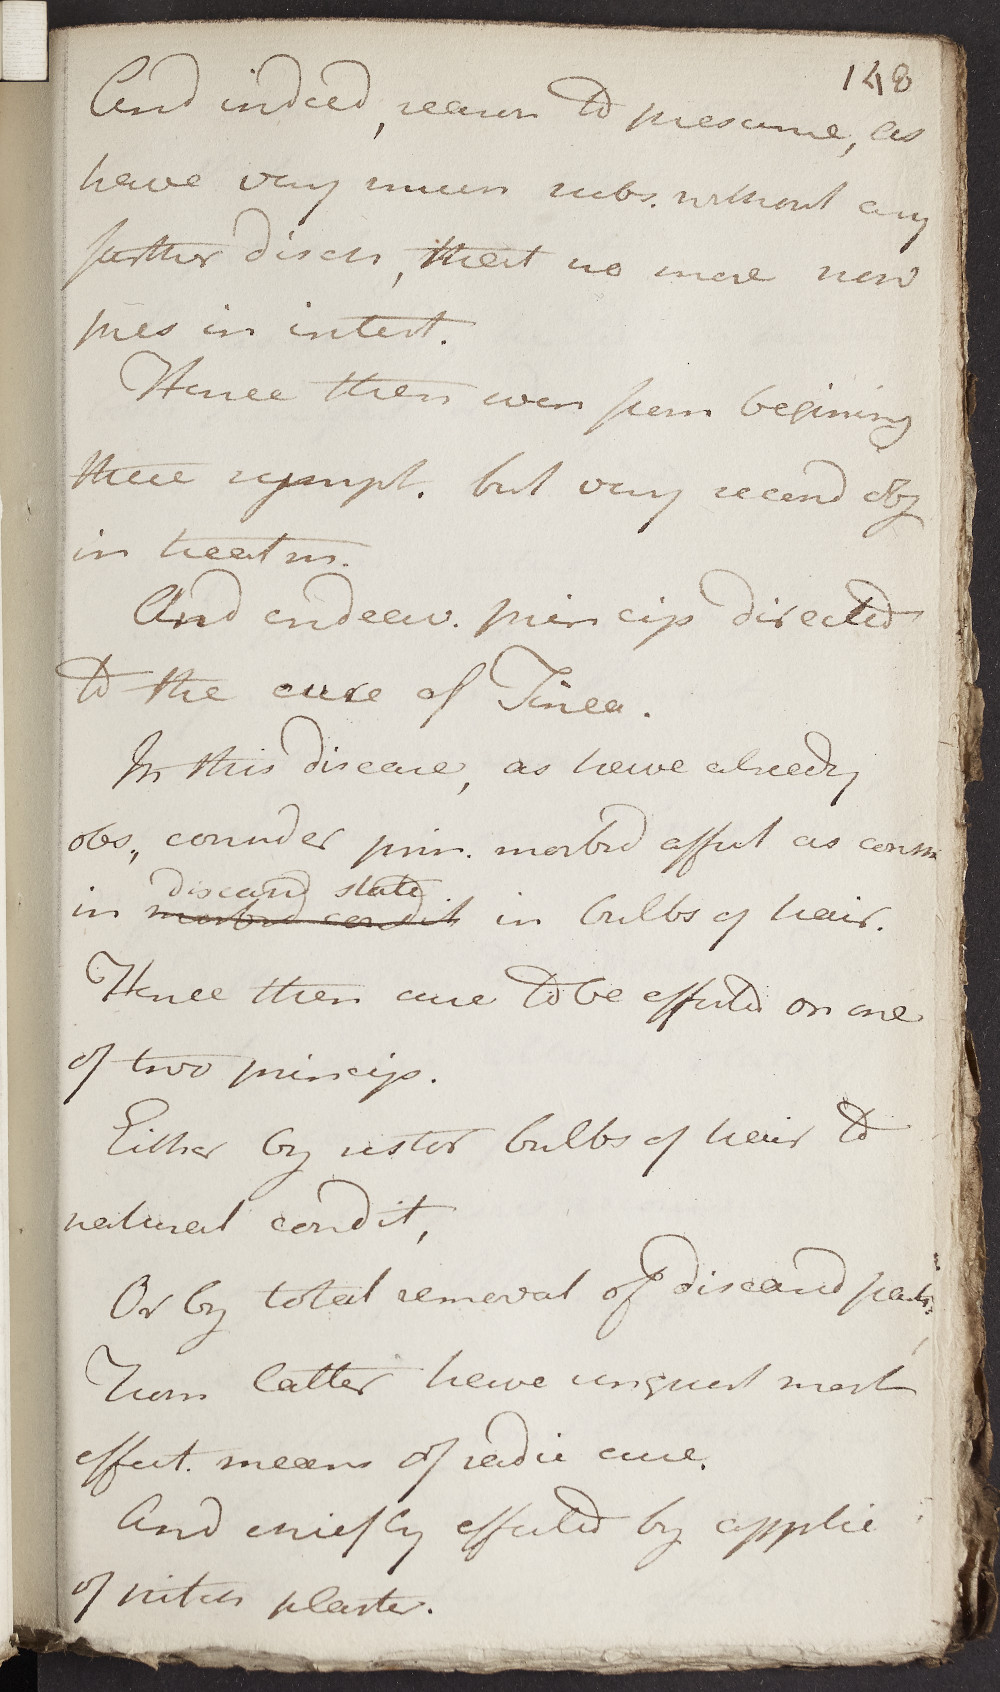 148
And indeed, reason to presume, as
have very much subs. without any
further disch, that no more now
pres in intest.
Hence then even from begining
these sympt. but very second obj
in treatm.
And endeav. princip directed
to the cure of Tinea.
In this disease, as have already
obs., consider prin. morbid affect as consis
diseased state
in morbid condit in bulbs of hair.
Hence then cure to be effected on one
of two princip.
Either by restor bulbs of hair to
natural condit,
Or by total removal of diseased parts,
From latter have unquest most
effect. means of radic cure.
And chiefly effected by applic
of pitch plaster.